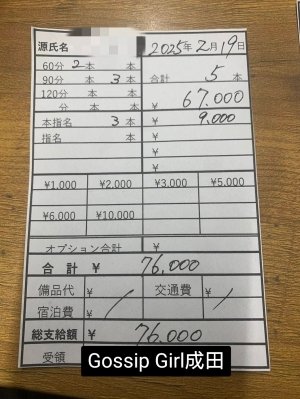 源氏名 2025年2月19日
60分 2本 本 合計 5本
90分 本 3本
120分 本 本 ¥ 67.000
分 本 本 ¥ 9.000
本指名 3本 ¥
指名 本 ¥
¥
¥
¥1,000 ¥2,000 ¥3,000 ¥5,000
¥6,000 ¥10,000
オプション合計 ¥
合計 ¥ 76.000
備品代 ¥ 交通費 ¥
宿泊費 ¥
総支給額 ¥ 76.000
受領
Gossip Girl成田